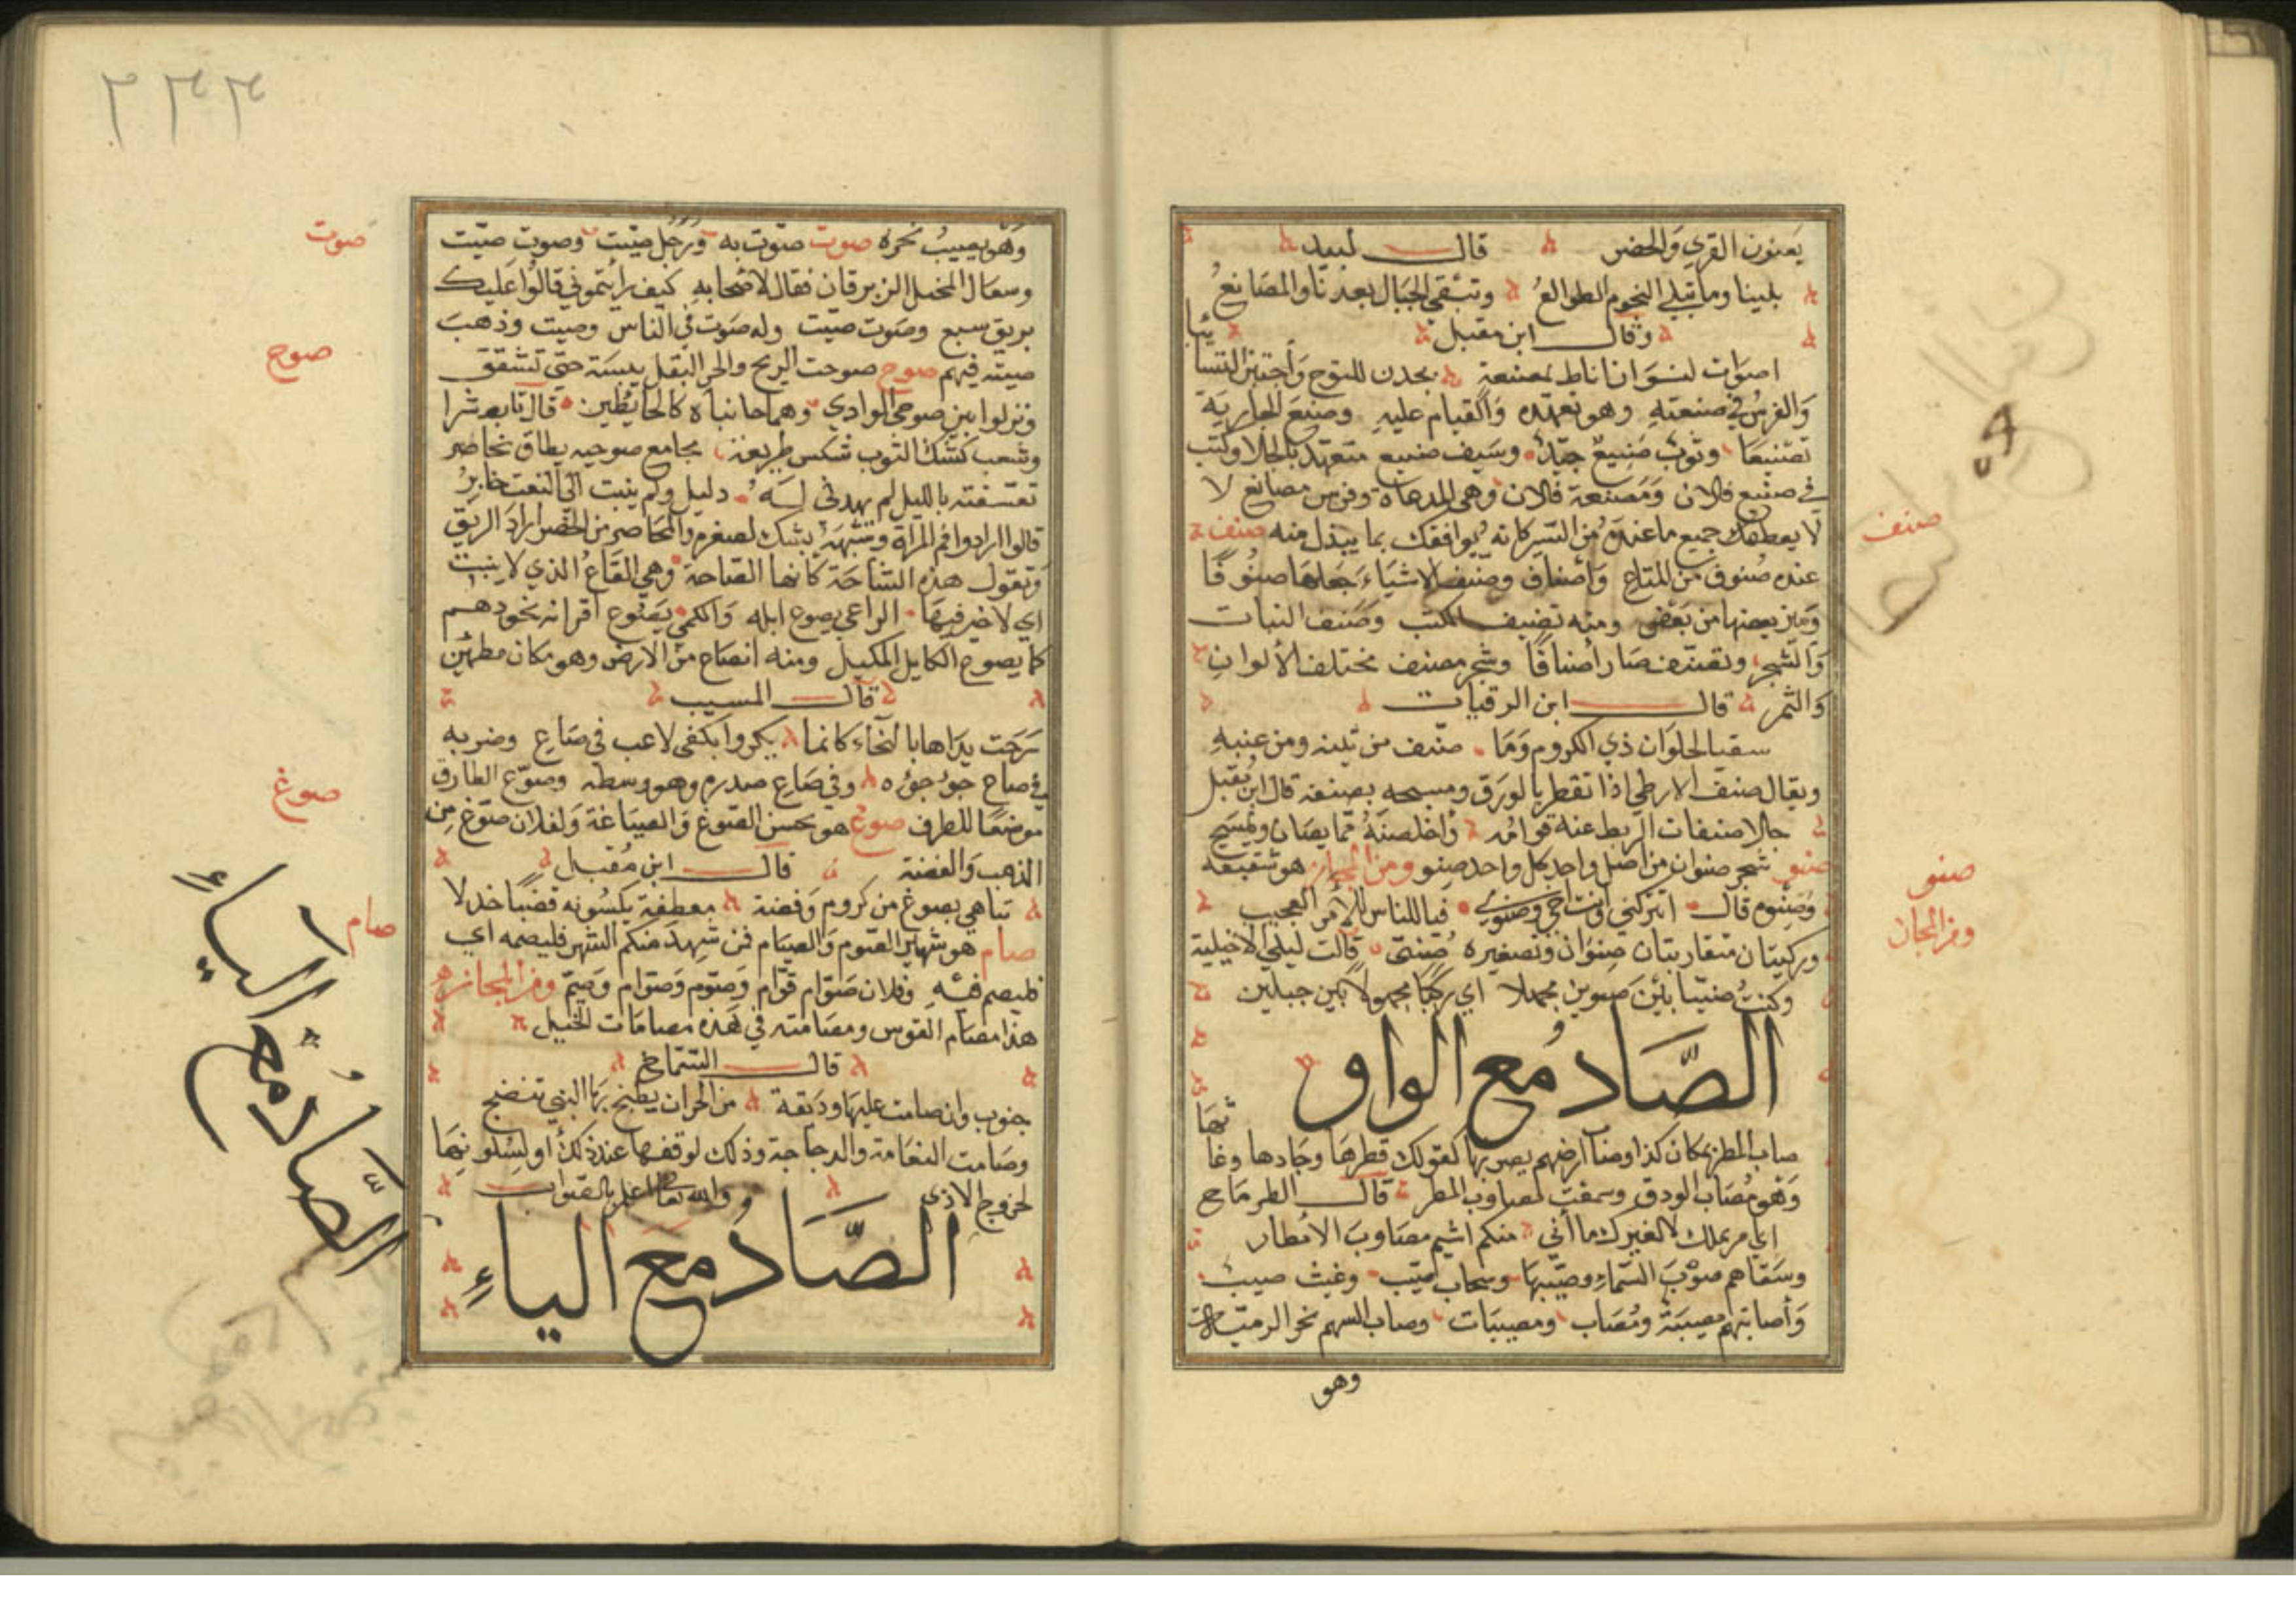 يعنون القرى والحضر قال لبيد
بلينا وما تبلى النجوم الطوالع وتبقى الجبال بعدنا والمصانع
وقال ابن مقبل
اصوات نسوان انباط بمصنعة بجدن للنوح واجتبن التبابينا
والفرس في صنعته وهو تعهده والقيام عليه وصنع الجارية
تصنيعا وثوب صنيع جيد وسيف صنيع متعهد بالجلاء وكتب
في صنيع فلان ومصنعة فلان وهي المدعاة وفرس مصانع لا
لا يعطيك جميع ما عنده من السير كانه يوافقك بما يبذل منه صنف
عنده صنوف من المتاع واصناف وصنف الاشياء جعلها صنوفا
وميز بعضها من بعض ومنه تصنيف الكتب وصنف النبات
والشجر وتصنف صار أصنافا وشجر مصنف مختلف الألوان
والثمر قال ابن الرقيات
سقيا لحلوان ذي الكروم وما صنف من تينه ومن عنبه
ويقال صنف الارطى اذا تفطر بالورق ومسحه بصنفة قال ابن مقبل
جلا صنفات الريط عنه قوامه واخلصنه مما يصان ويمسح
صنو شجر صنوان من اصل واحد كل واحد صنو ومن المجاز هو شقيقه
وصنوه قال اتتركني وانت اخي وصنوي فيا للناس للأمر العجيب
وركيتان متقاربتان صنوان وتصغيره صني قالت ليلى الاخيلية
وكنت صنيا بين صنوين مجهلا اي ركيا مجهولا بين جبلين
الصاد مع الواو
صاب المطر بمكان كذا وصاب ارضهم يصوبها كقولك قطرها وجادها وغاثها
وهو مصاب الودق وسمعت لمصاوب المطر قال الطرماح
اي مر بملك لا لغيرك ما انى منكم اشيم مصاوب الامطار
وسقاهم صوب السماء وصيبها وسحاب صيب وغيث صيب
وأصابتهم مصيبة ومصاب ومصيبات وصاب السهم نحو الرمية
وهو
صنف
صنو
ومن المجاز
٢٣٣
وهو يصيب نحوه صوت صوت به ورجل صيت وصوت صيت
وسعال المخبل الزبرقان فقال لاصحابه كيف رايتموني قالوا عليك
بريق سبع وصوت صيت وله صوت في الناس وصيت وذهب
صيته فيهم صوح صوحت الريح والحر البقل يبسته حتى تشقق
ونزلوا بين صوحي الوادي وهما جانباه كالحائطين قال تابط شرا
وشعب كشك الثوب شكس طريقة مجامع صوحيه نطاق مخاصر
تعسفته بالليل لم يهدني له دليل ولم يثبت الى النعت خابر
قالوا ارادوا فم المرأة وشبهه بشك لصغره والمخاصر من الخصر اراد الريق
وتقول هذه الساحة كانها الصاحة وهي القاع الذي لا ينبت
اي لا خير فيها الراعي يصوع ابله والكمي يصوع اقرانه يحوذهم
كما يصوع الكايل المكيل ومنه انصاح من الارض وهو مكان مطمئن
قال المسيب
مرحت يداها بالنجاء كانما يكروا بكفي لاعب في صاع وضربه
في صاح جؤجؤه وفي صاع صدره وهو وسطه وصوع الطارق
موضعا للطرف صوغ هو يحسن الصوغ والصياغة ولفلان صوغ من
الذهب والفضة قال ابن مقبل
تباهي بصوغ من كروم وفضة معطفة يكسونه قصبا خدلا
صام هو شهر الصوم والصيام فمن شهد منكم الشهر فليصمه اي
فليصم فيه وفلان صوام قوام وصوم وصوام وصيم ومن المجاز
هذا مصام الفرس ومصامته في هذه مصامات الخيل
قال الشماخ
جنوب وان صامت عليها وديقة من الحر ان يطبخ بها الني تنضج
وصامت النعامة والدجاجة وذلك لوقفها عند ذلك او لسكونها
لخروج الاذى والله تعالى اعلم بالصواب
الصاد مع الياء
صوت
صوح
صوغ
صام
الصاد مع الياء